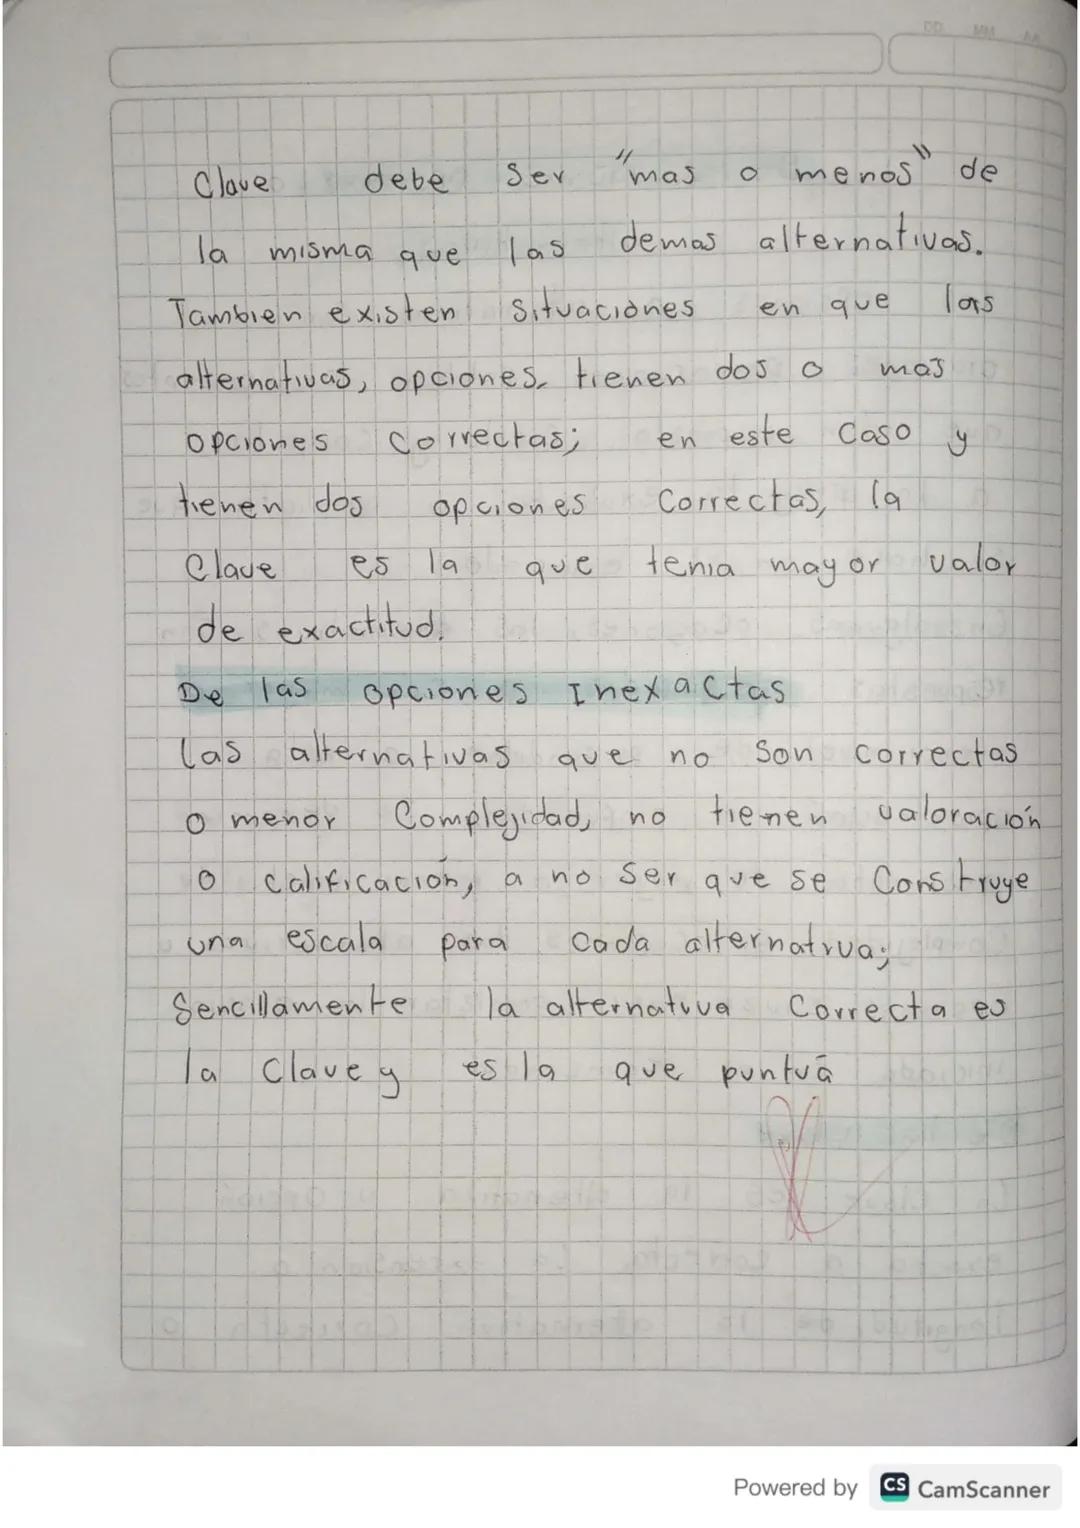 Clave debe ser "mas o menos" de
la misma que las demas alternativas.
Tambien existen situaciones en que las
alternativas, opciones tienen dos o mas
opciones correctas; en este caso y
tienen dos opciones correctas, la
Clave es la que tenia mayor valor
de exactitud.
De las opciones Inexactas
las alternativas que no son correctas
o menor Complejidad, no tienen valoración
o calificación, a no ser que se construye
una escala para cada alternativa;
Sencillamente la alternativa Correcta es
la Clave y es la que puntuá
Powered by CS CamScanner